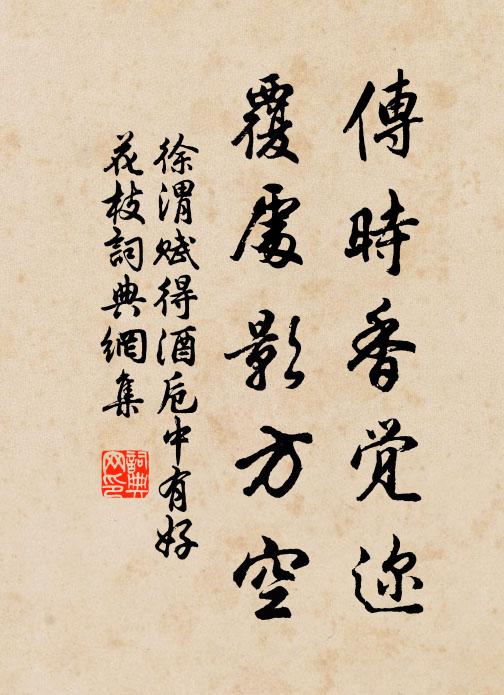 傳時香覺迩
覆處影方空
徐渭賦得酒卮中有好
花枝詞典網集
詞典网印